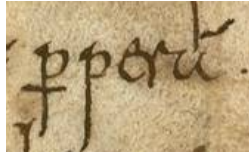 ꝑperū.